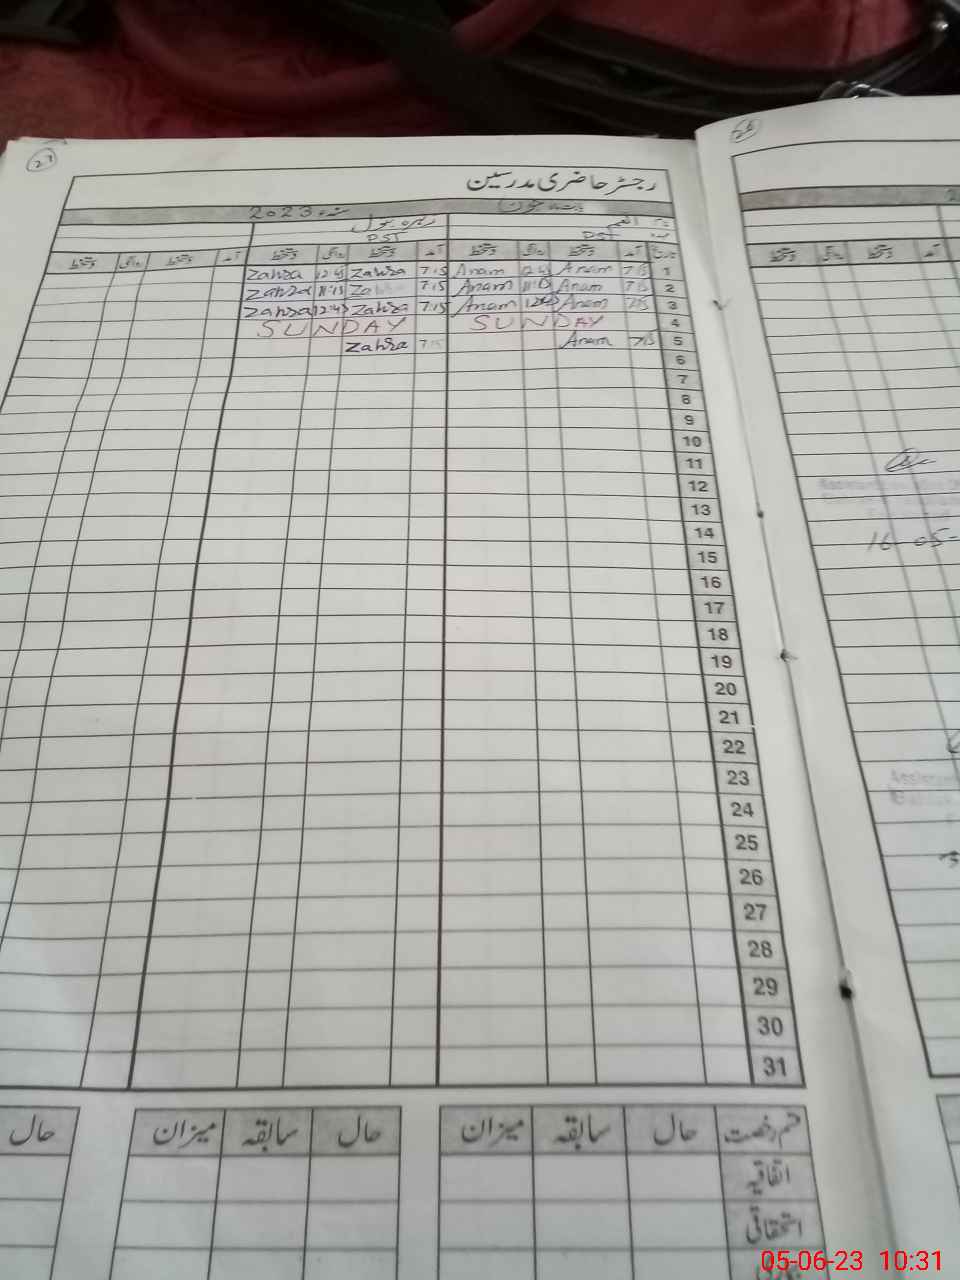 27
26
رجسٹر حاضری مدرسین
بابت ماہ جون سنہ 2023ء
PST PST
تاریخ آمد دستخط روانگی دستخط آمد دستخط روانگی دستخط آمد دستخط روانگی دستخط
1 7:15 Anam 12:45 Anam 7:15 Zahra 12:45 Zahra
2 7:15 Anam 11:15 Anam 7:15 Za 11:15 Zahra
3 7:15 Anam 12:45 Anam 7:15 Zahra 12:45 Zahra
4 SUNDAY SUNDAY
5 7:15 Anam 7:15 Zahra
6
7
8
9
10
11
12
13
14
15
16
17
18
19
20
21
22
23
24
25
26
27
28
29
30
31
16-05-
قسم رخصت حال سابقہ میزان حال سابقہ میزان حال
اتفاقیہ
استحقاقی
05-06-23 10:31